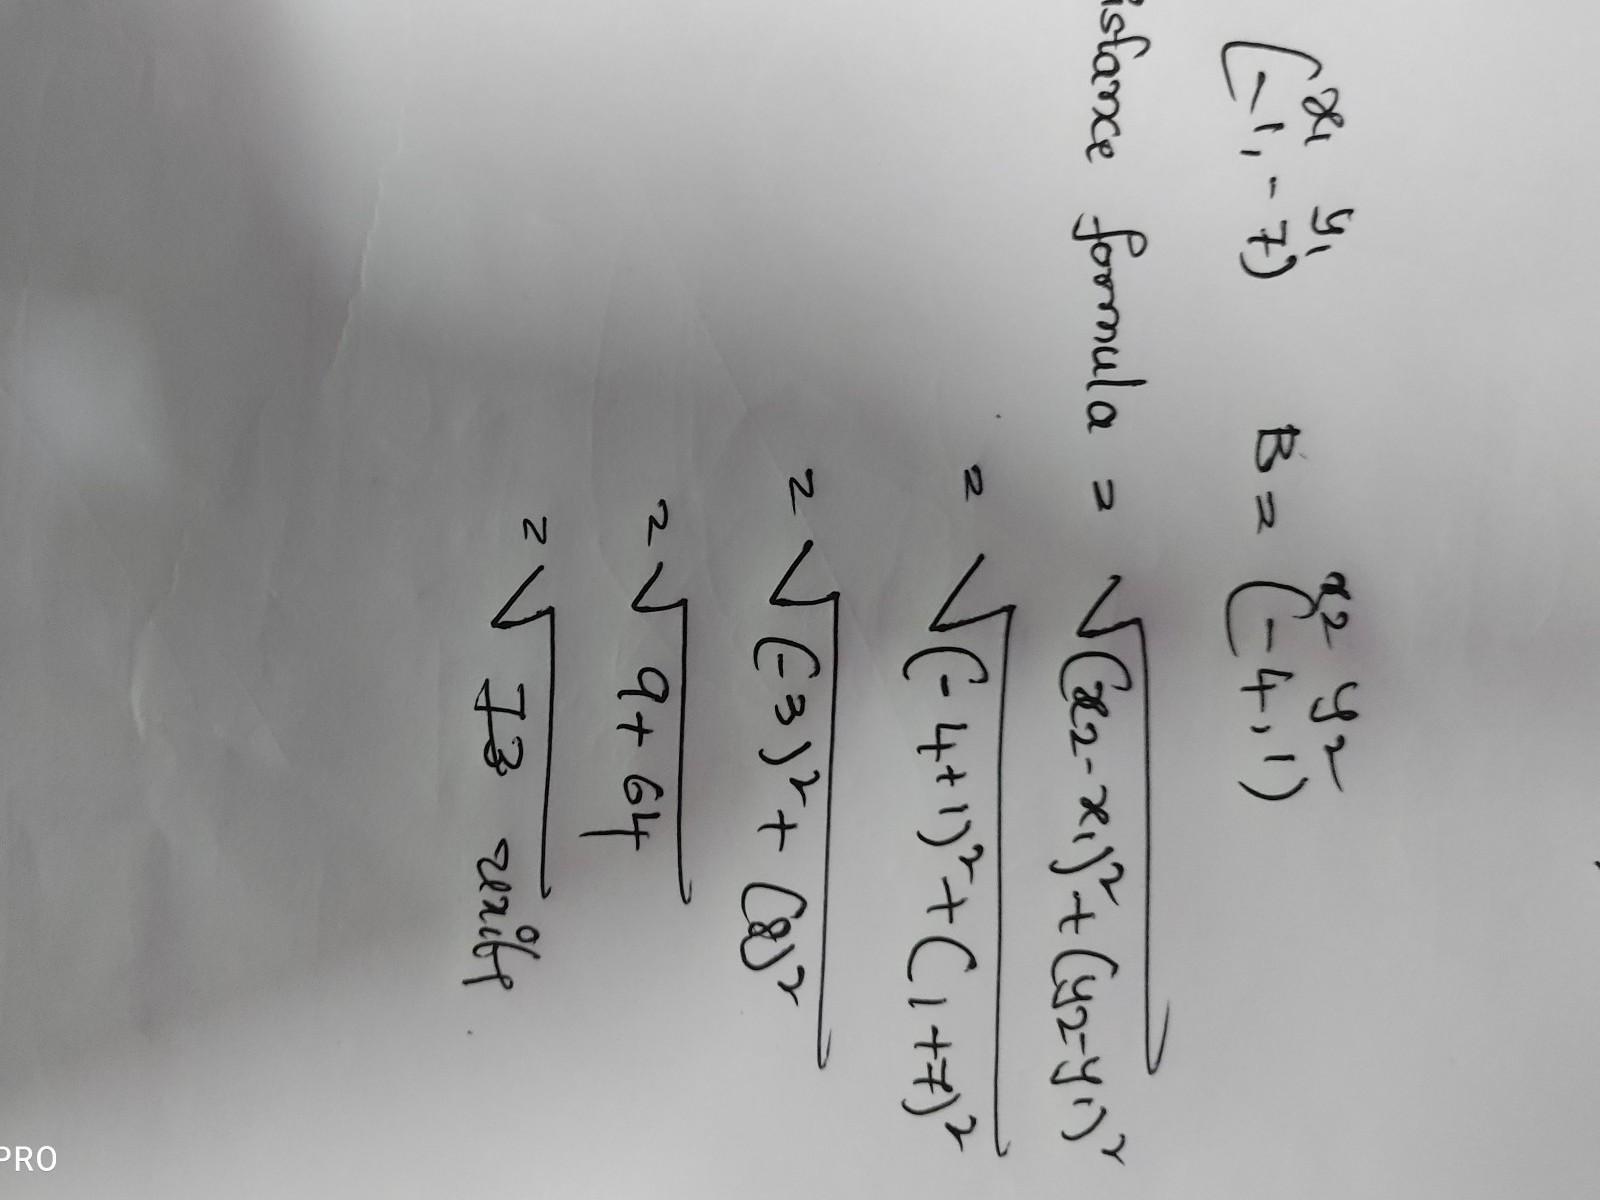 (-1, -7) B = (-4, 1)
x1 y1 x2 y2
istance formula = √(x2-x1)²+(y2-y1)²
= √(-4+1)²+(1+7)²
= √(-3)²+(8)²
= √9+64
= √73 units
PRO